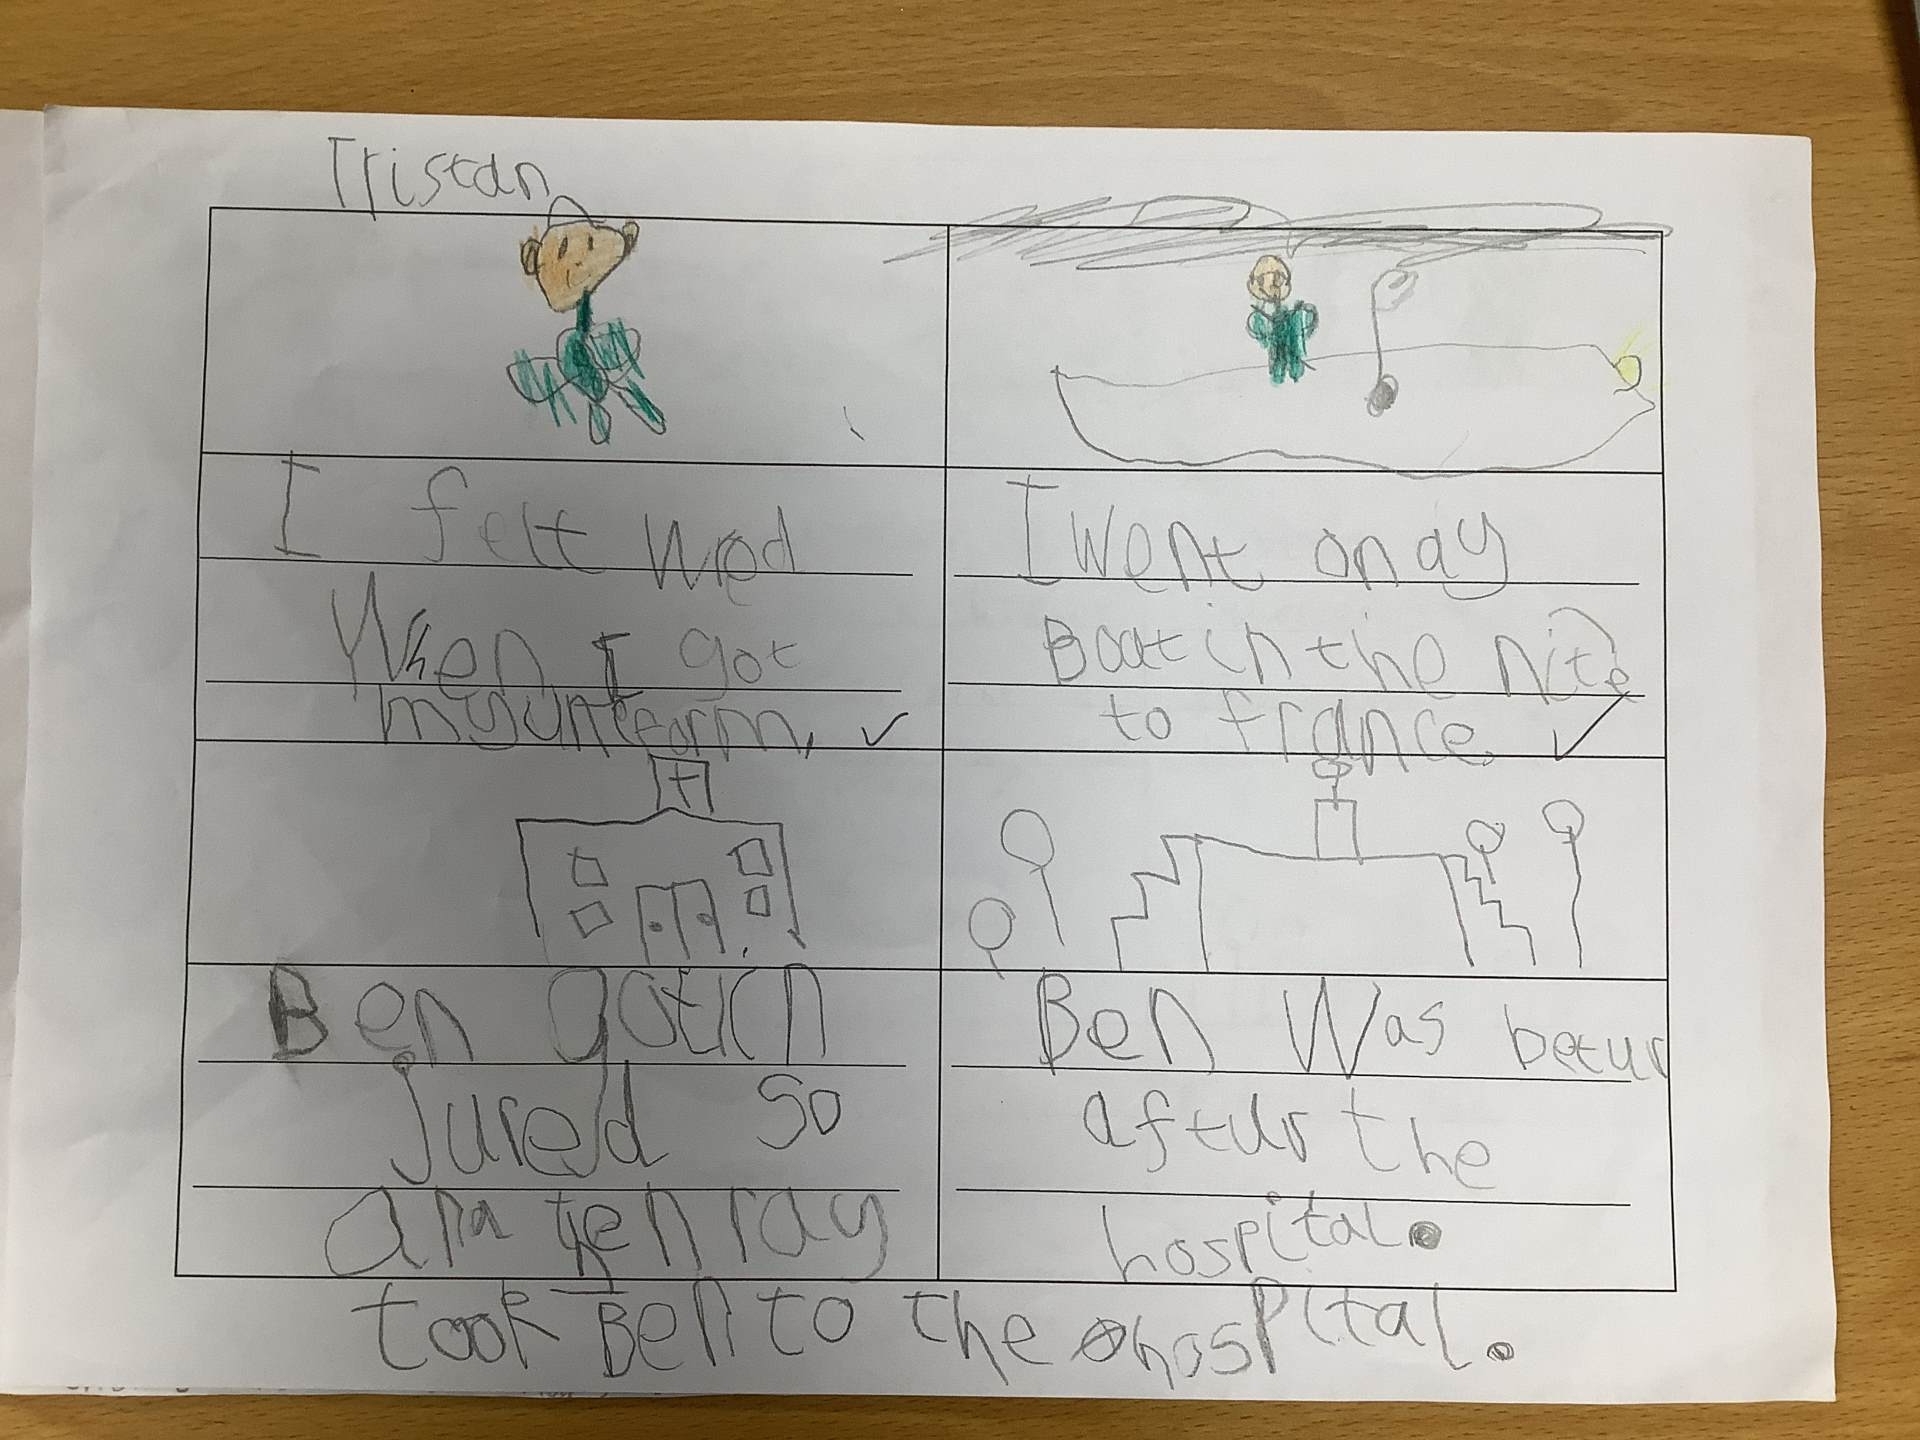 Tristan
I felt wed
When I got
myuneform.
I went on ay
Boat in the nite
to france.
Ben gotich
jured so
took Ben to the hospital.
Ben was betur
aftur the
hospital.